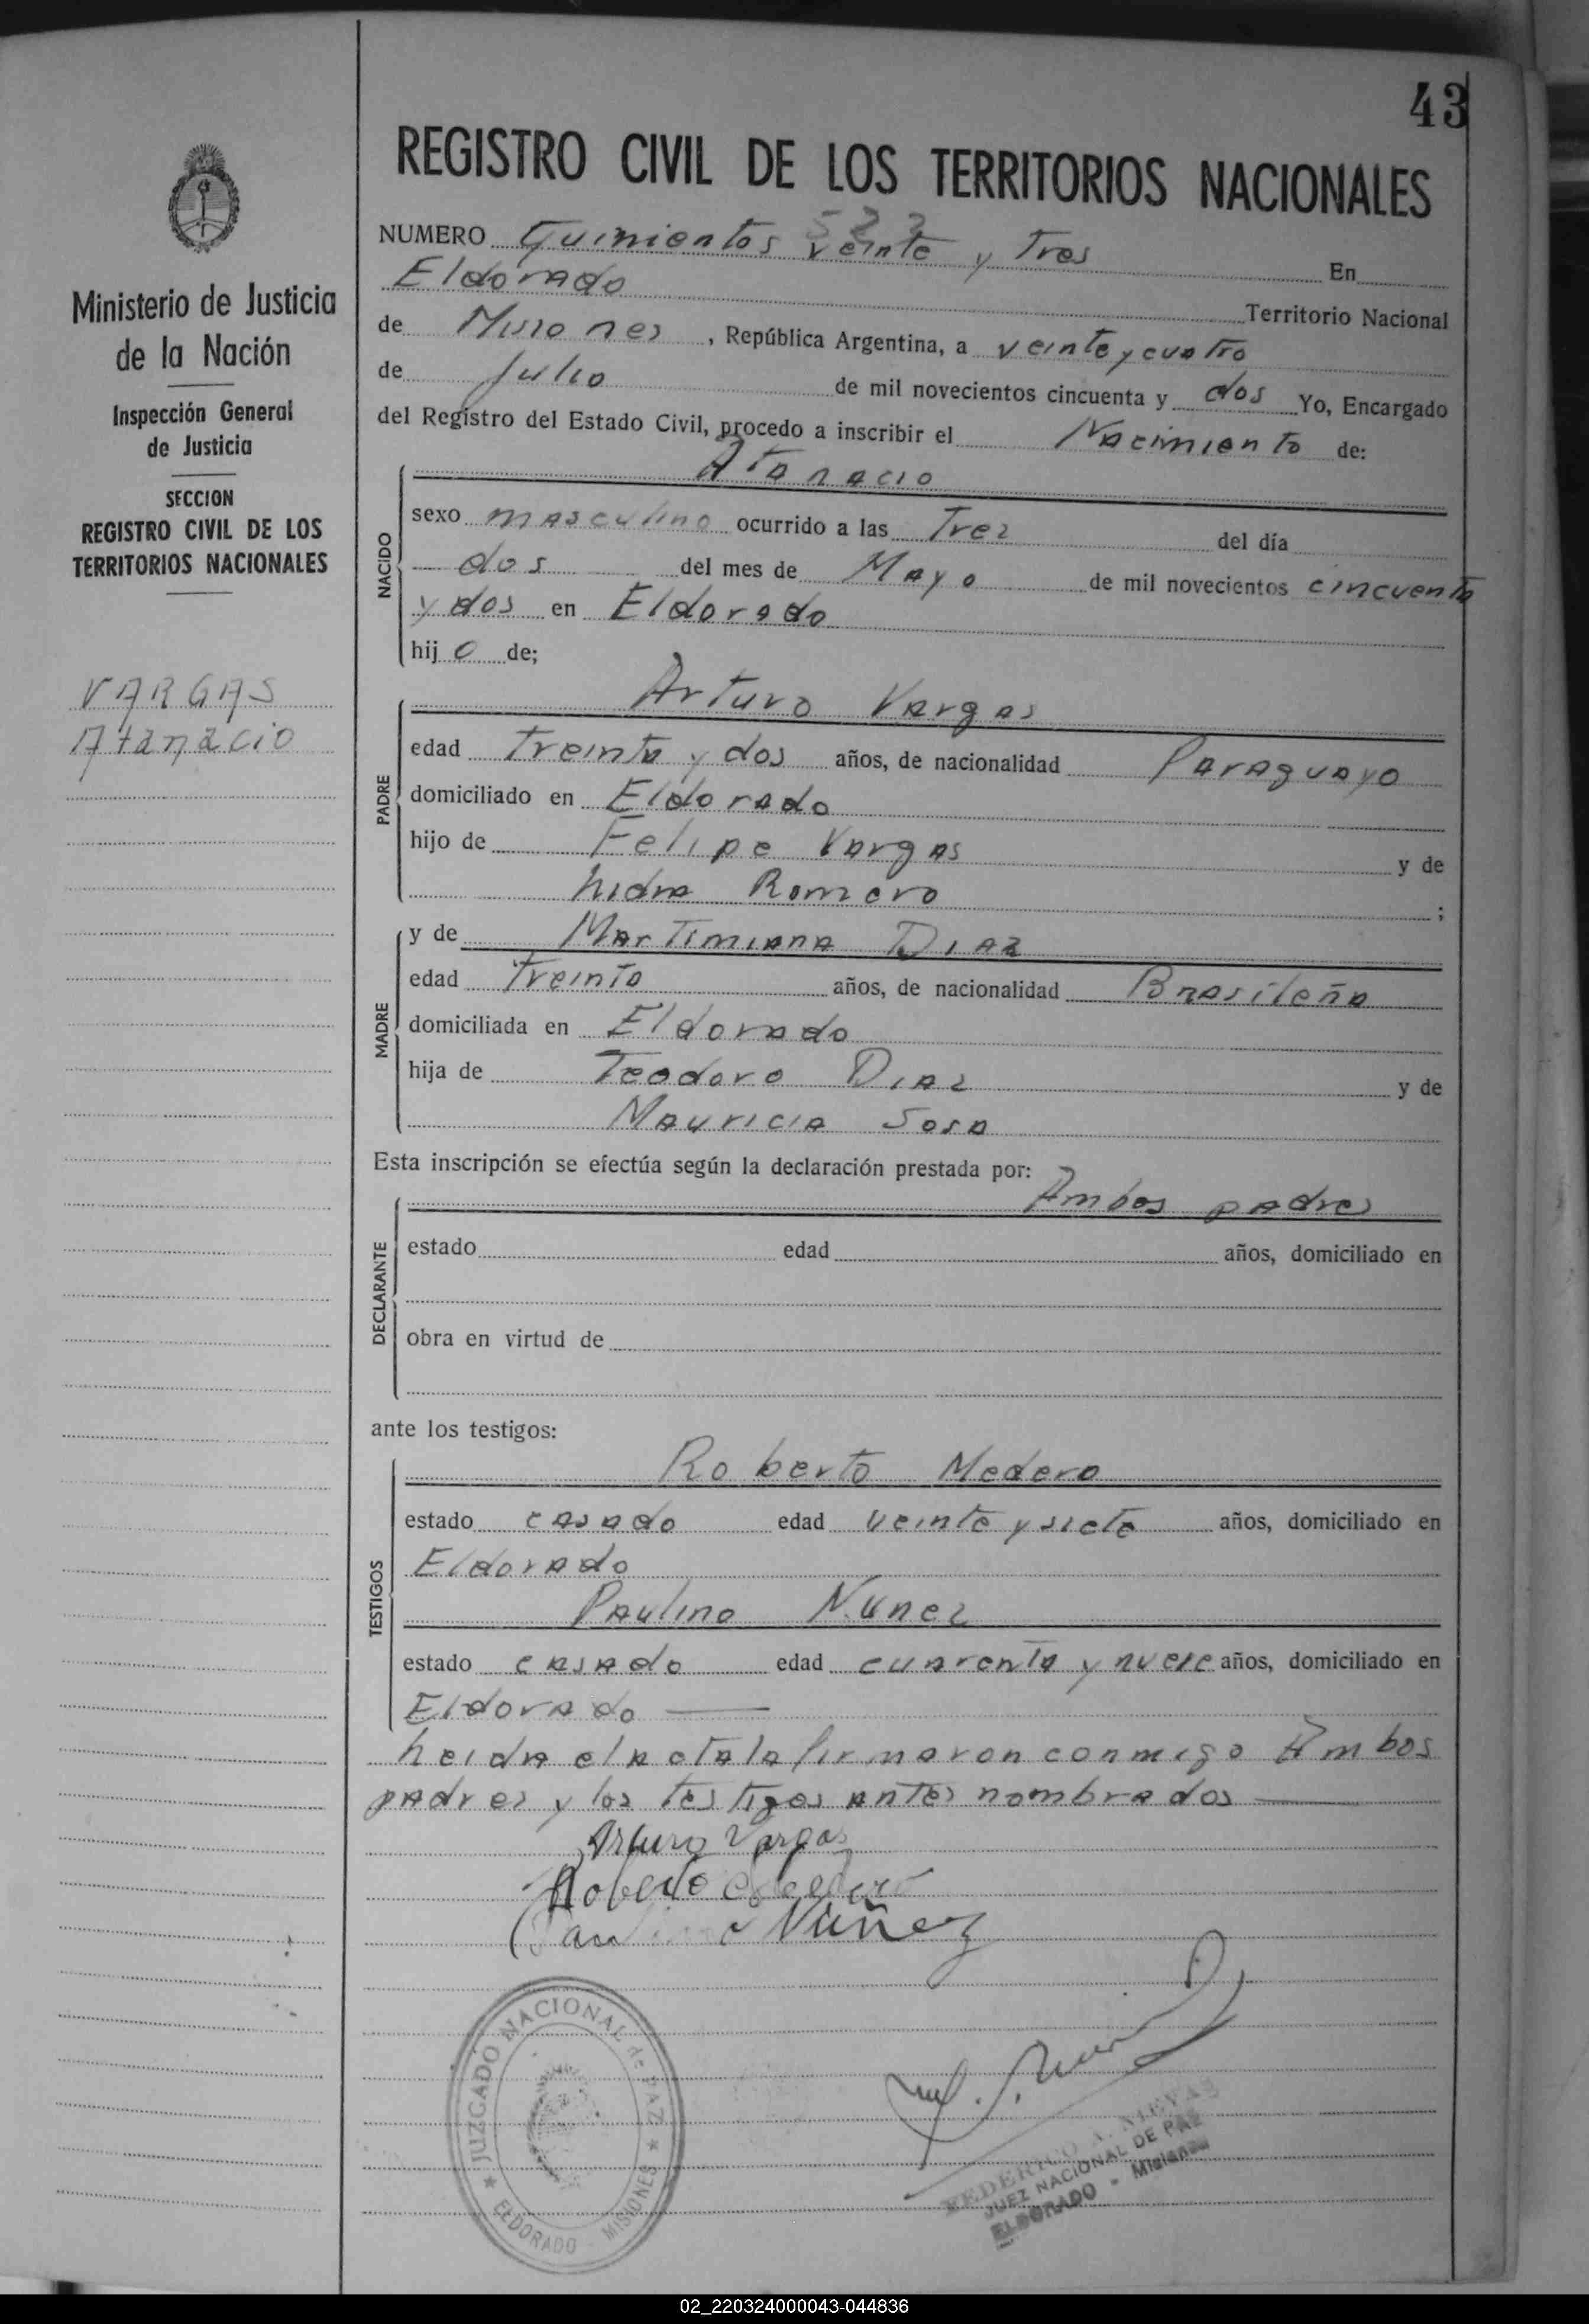 43
REGISTRO CIVIL DE LOS TERRITORIOS NACIONALES
Ministerio de Justicia
de la Nación
Inspección General
de Justicia
SECCION
REGISTRO CIVIL DE LOS
TERRITORIOS NACIONALES
VARGAS
Atanacio
523
NUMERO Quinientos veinte y Tres En
Eldorado Territorio Nacional
de Misiones, República Argentina, a veinte y cuatro
de Julio de mil novecientos cincuenta y dos Yo, Encargado
del Registro del Estado Civil, procedo a inscribir el Nacimiento de:
Atanacio
NACIDO
sexo masculino ocurrido a las Tres del día
dos del mes de Mayo de mil novecientos cincuenta
y dos en Eldorado
hij o de;
Arturo Vargas
PADRE
edad Treinta y dos años, de nacionalidad Paraguayo
domiciliado en Eldorado
hijo de Felipe Vargas y de
Romero ;
MADRE
y de Martimiana Diaz
edad Treinta años, de nacionalidad Brasileña
domiciliada en Eldorado
hija de Teodoro Diaz y de
Mauricia Sosa
Esta inscripción se efectúa según la declaración prestada por:
Ambos padres
DECLARANTE
estado edad años, domiciliado en
obra en virtud de
ante los testigos:
TESTIGOS
Roberto Medero
estado casado edad veinte y siete años, domiciliado en
Eldorado
Paulino Nunez
estado casado edad cuarenta y nueve años, domiciliado en
Eldorado
Leida el acta la firmaron conmigo Ambos
padres y los testigos antes nombrados
Arturo Vargas
Roberto
Paulino Núñez
JUZGADO NACIONAL de PAZ
ELDORADO - MISIONES
FEDERICO A. NIEVAS
JUEZ NACIONAL DE PAZ
ELDORADO - Misiones
02_220324000043-044836